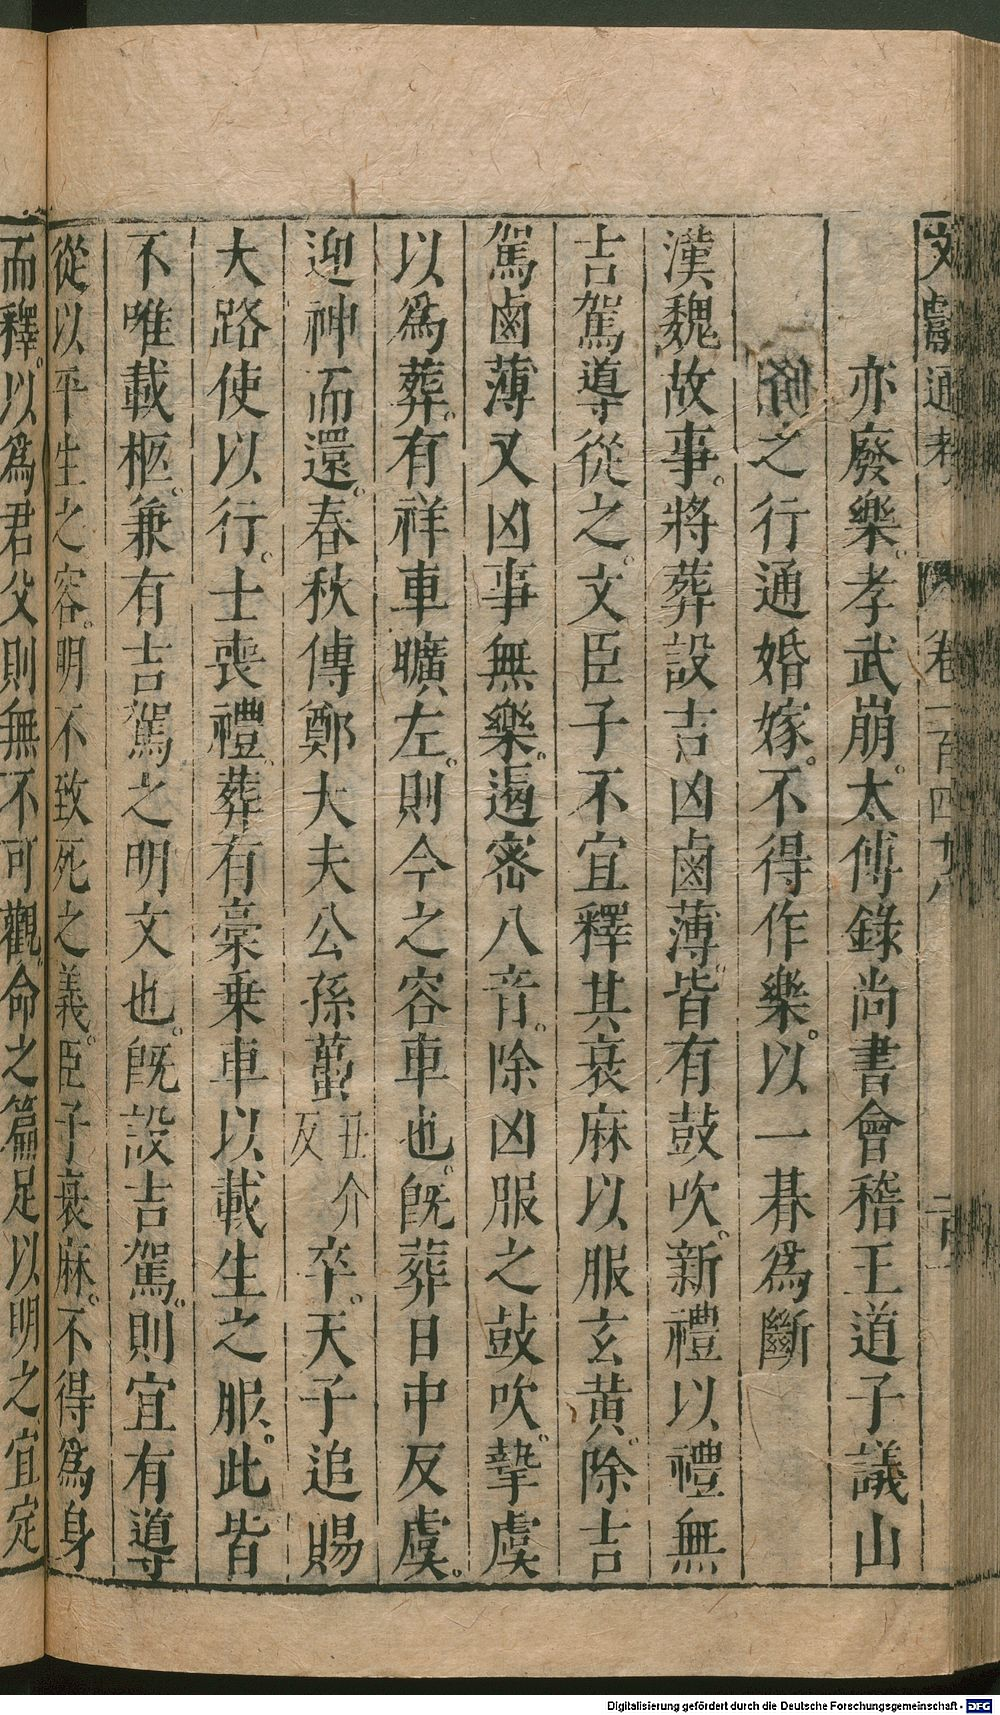 文獻通考 卷一百四九
亦廢樂。孝武崩。太傅錄尚書會稽王道子議山
之行通婚嫁。不得作樂。以一朞爲斷
漢魏故事。將葬設吉凶鹵薄。皆有鼓吹。新禮以禮無
吉駕導從之。文臣子不宜釋其衰麻以服玄黄。除吉
駕鹵薄又凶事無樂。遏密八音。除凶服之鼓吹。摯虞
以爲葬。有祥車曠左。則今之容車也。旣葬日中反虞。
迎神而還。春秋傳鄭大夫公孫蠆丑介反卒。天子追賜
大路使以行。士喪禮。葬有槀乗車以載生之服。此皆
不唯載柩。兼有吉駕之明文也。旣設吉駕。則宜有導
從以平生之容。明不致死之義。臣子衰麻。不得爲身
而釋。以爲君父則無不可觀。命之篇足以明之宜定
Digitalisierung gefördert durch die Deutsche Forschungsgemeinschaft - DFG